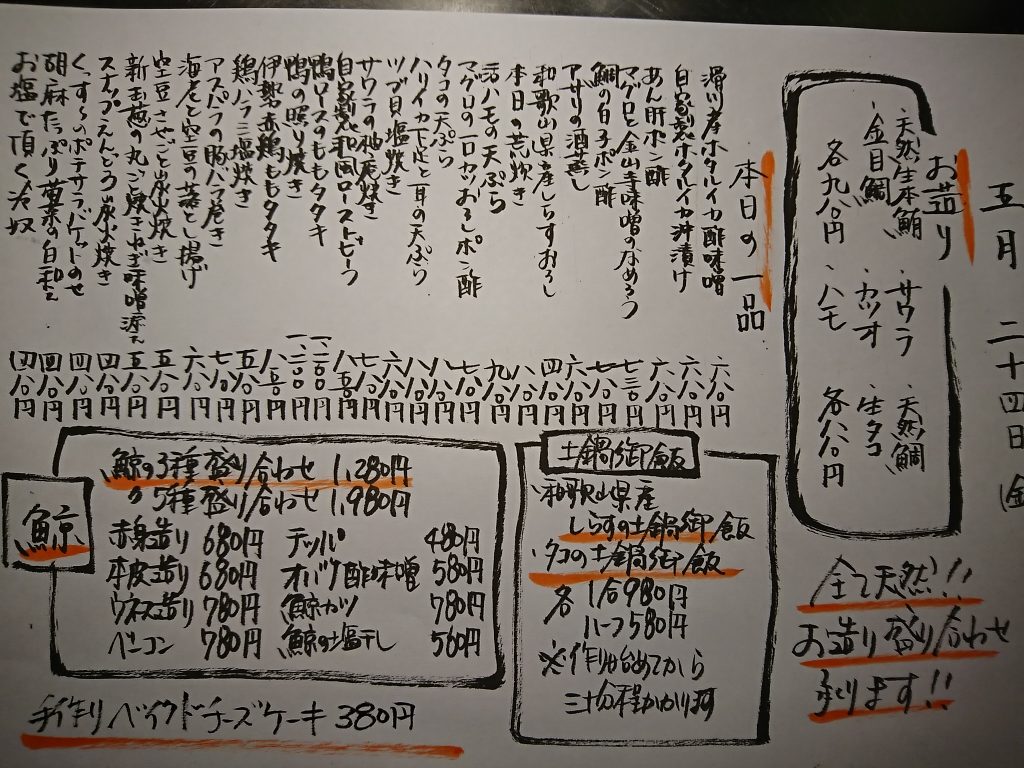 五月 二十四日 (金
お造り
・天然生本鮪
・金目鯛
各九八〇円
・サワラ
・カツオ
・ハモ
・天然鯛
・生タコ
各八八〇円
全て天然!!
お造り盛り合わせ
承ります!!
本日の一品
滑川産ホタルイカ酢味噌 六八〇円
自家製ホタルイカ沖漬け 六八〇円
あん肝ポン酢 六八〇円
マグロと金山寺味噌のなめろう 七三〇円
鯛の白子ポン酢
アサリの酒蒸し 六八〇円
和歌山県産しらすおろし 四八〇円
本日の荒炊き
活ハモの天ぷら 九八〇円
マグロの一口カツおろしポン酢 七八〇円
タコの天ぷら 八八〇円
ハリイカ下足と耳の天ぷら 八八〇円
ツブ貝塩焼き 六八〇円
サワラの柚庵焼き 七八〇円
自家製和風ローストビーフ 八五〇円
鴨ロースのももタタキ
鴨の照り焼き
伊勢赤鶏ももタタキ 八五〇円
鶏バラ三塩焼き 五八〇円
アスパラの豚バラ巻き 七八〇円
海老と空豆の落とし揚げ 六八〇円
空豆さやごと炭火焼き 五八〇円
新玉葱の丸ごと焼きねぎ味噌添え 五八〇円
スナップえんどう炭火焼き 四八〇円
くんすんのポテサラバゲットのせ 四八〇円
胡麻たっぷり青菜の白和え 四八〇円
お塩で頂く冷奴 四八〇円
土鍋御飯
・和歌山県産
しらすの土鍋御飯
・タコの土鍋御飯
各 1合980円
ハーフ580円
※作り始めてから
三十分程かかります
鯨
・鯨の3種盛り合わせ 1,280円
・〃5種盛り合わせ 1,980円
・赤身造り 680円
・本皮造り 680円
・ウネス造り 780円
・ベーコン 780円
・テッパ 480円
・オバケ酢味噌 580円
・鯨カツ 780円
・鯨の塩干し 560円
手作りベイクドチーズケーキ 380円